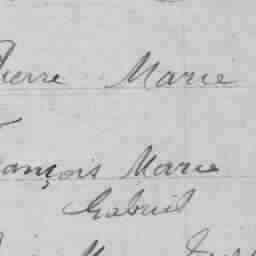 Pierre Marie
François Marie
Gabriel